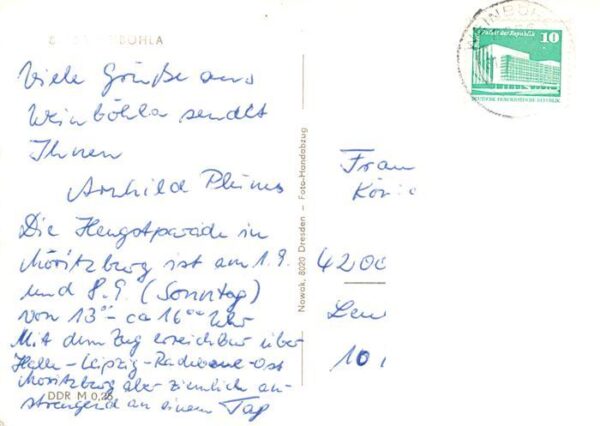 BÖHLA
Viele Grüße aus
Weinböhla sendet
Ihnen
Die Hengstparade in
Moritzburg ist am 1.9.
und 8.9. (Sonntag)
von 13⁰⁰ - ca 16⁰⁰ Uhr
Mit dem Zug erreichbar über
Halle-Leipzig-Radebeul-Ost
Moritzburg aber ziemlich an-
strengend an einem Tag
DDR M 0,25
Nowak, 8020 Dresden – Foto-Handabzug
WEINBÖH
Palast der Republik
10
DEUTSCHE DEMOKRATISCHE REPUBLIK
Frau
4200
10